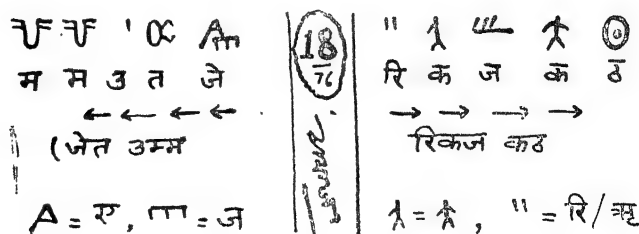 म म उ त जे
← ← ← ←
(जेत उम्म
A = ए, m = ज
18
76
रि क ज क ठ
→ → → →
रिकज कठ
= , " = रि/ऋ